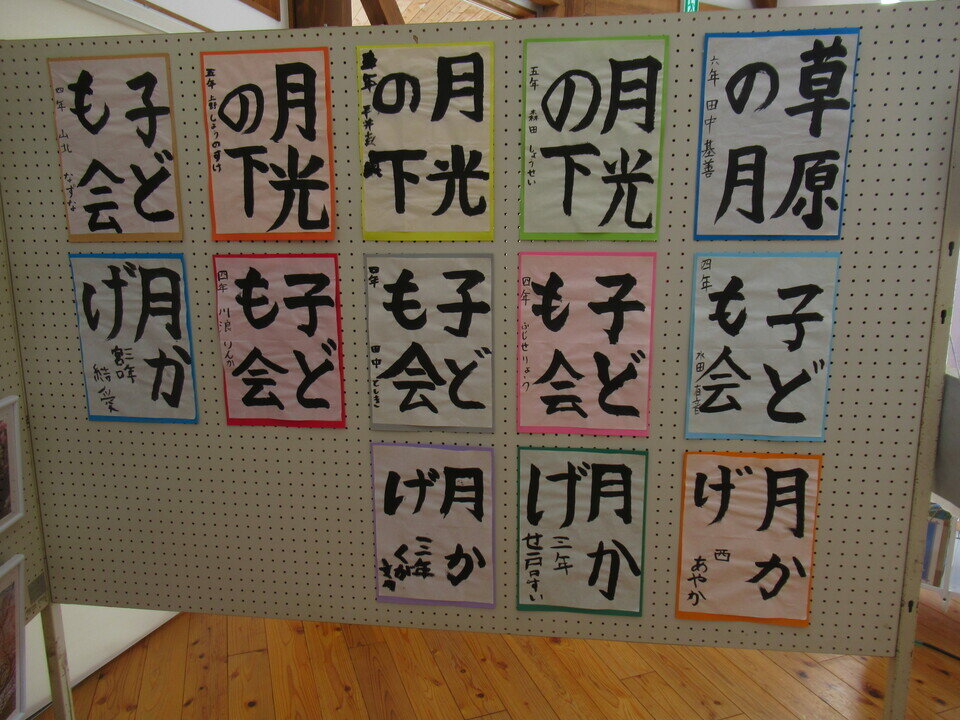 草原
の月
六年 田中 基善
月光
の下
五年 森田 しょうせい
月光
の下
月光
の下
五年 しょうのすけ
子ど
も会
四年 山北 なずな
子ど
も会
四年 水田
子ど
も会
四年 ふじせりょう
子ど
も会
四年 田中
子ど
も会
四年 川浪 りんか
月か
げ
月か
げ
西 あやか
月か
げ
三年
月か
げ
三年